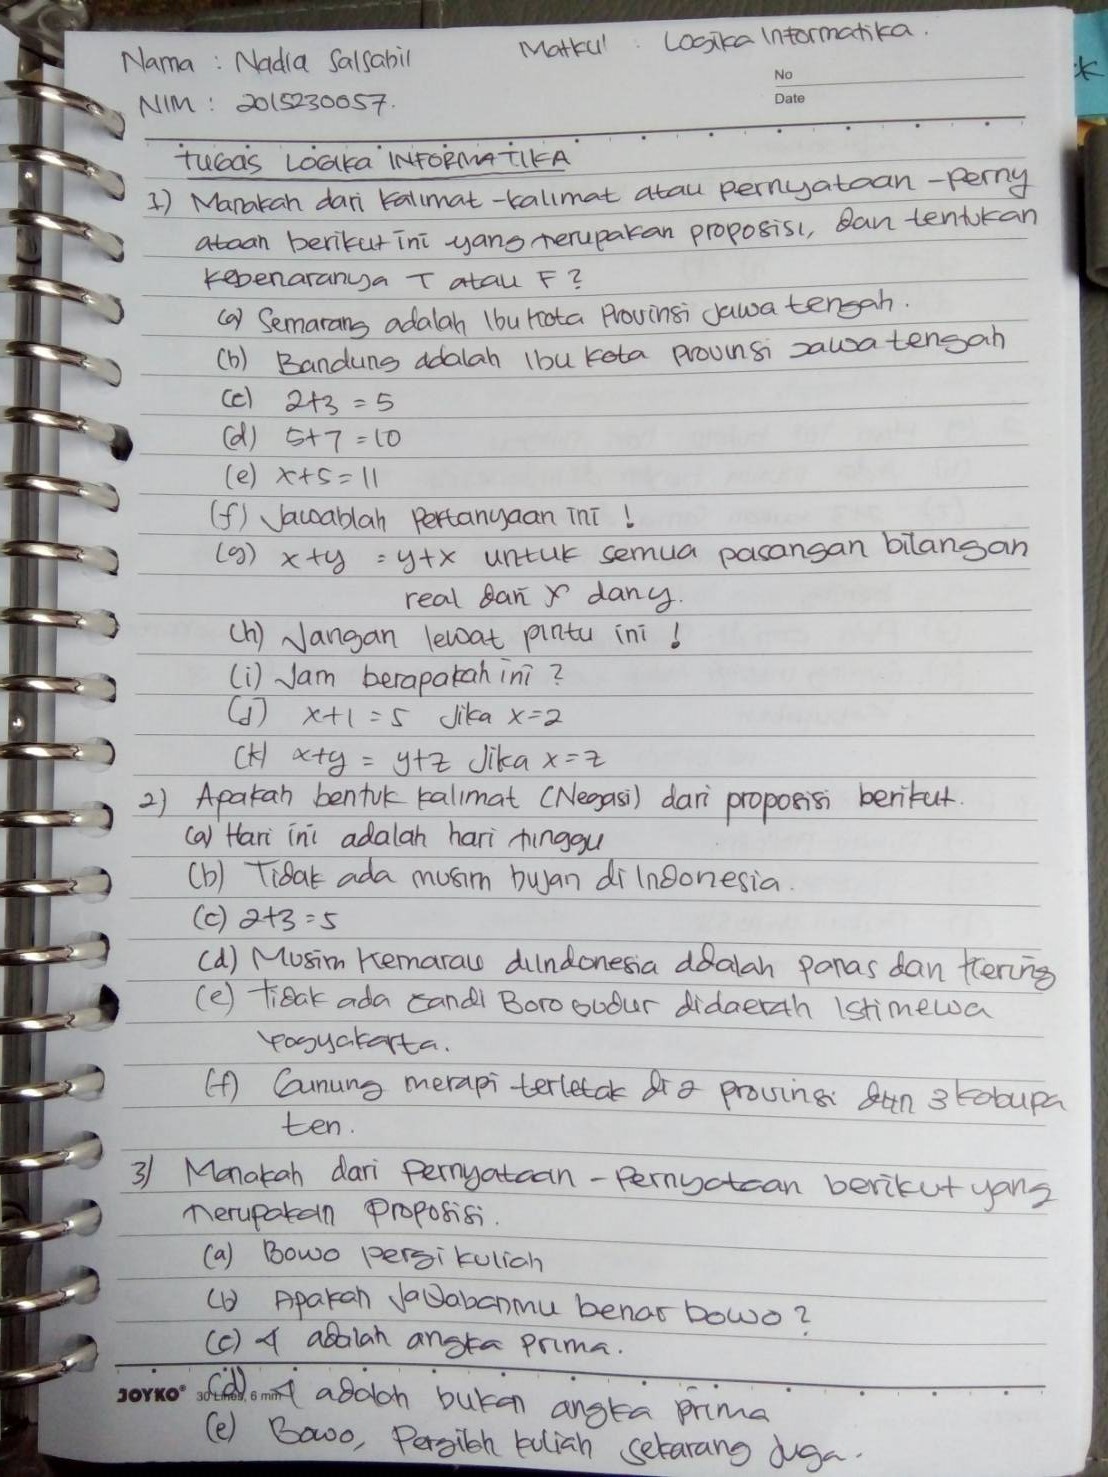 Nama : Nadia Salsabil
Matkul : Logika Informatika.
NIM : 2015230057.
No
Date
TUGAS LOGIKA INFORMATIKA
1) Manakah dari kalimat-kalimat atau pernyataan-perny
ataan berikut ini yang merupakan proposisi, dan tentukan
kebenaranya T atau F?
(a) Semarang adalah Ibu kota Provinsi Jawa tengah.
(b) Bandung adalah Ibu kota provinsi Jawa tengah
(c) 2+3 = 5
(d) 5+7 = 10
(e) x+5 = 11
(f) Jawablah Pertanyaan ini !
(g) x+y = y+x untuk semua pasangan bilangan
real dari x dan y.
(h) Jangan lewat pintu ini !
(i) Jam berapakah ini ?
(j) x+1 = 5 Jika x=2
(k) x+y = y+z Jika x=z
2) Apakah bentuk kalimat (Negasi) dari proposisi berikut.
(a) Hari ini adalah hari minggu
(b) Tidak ada musim hujan di Indonesia.
(c) 2+3=5
(d) Musim Kemarau diIndonesia adalah panas dan kering
(e) tidak ada candi Borobudur didaerah Istimewa
Yogyakarta.
(f) Gunung merapi terletak di 2 provinsi dan 3 kabupa
ten.
3) Manakah dari Pernyataan-Pernyataan berikut yang
merupakan Proposisi.
(a) Bowo pergi kuliah
(b) Apakah Jawabanmu benar bowo?
(c) 4 adalah angka prima.
JOYKO® 30 Lines, 6 mm
(d) 4 adalah bukan angka prima
(e) Bowo, Pergilah kuliah sekarang juga.